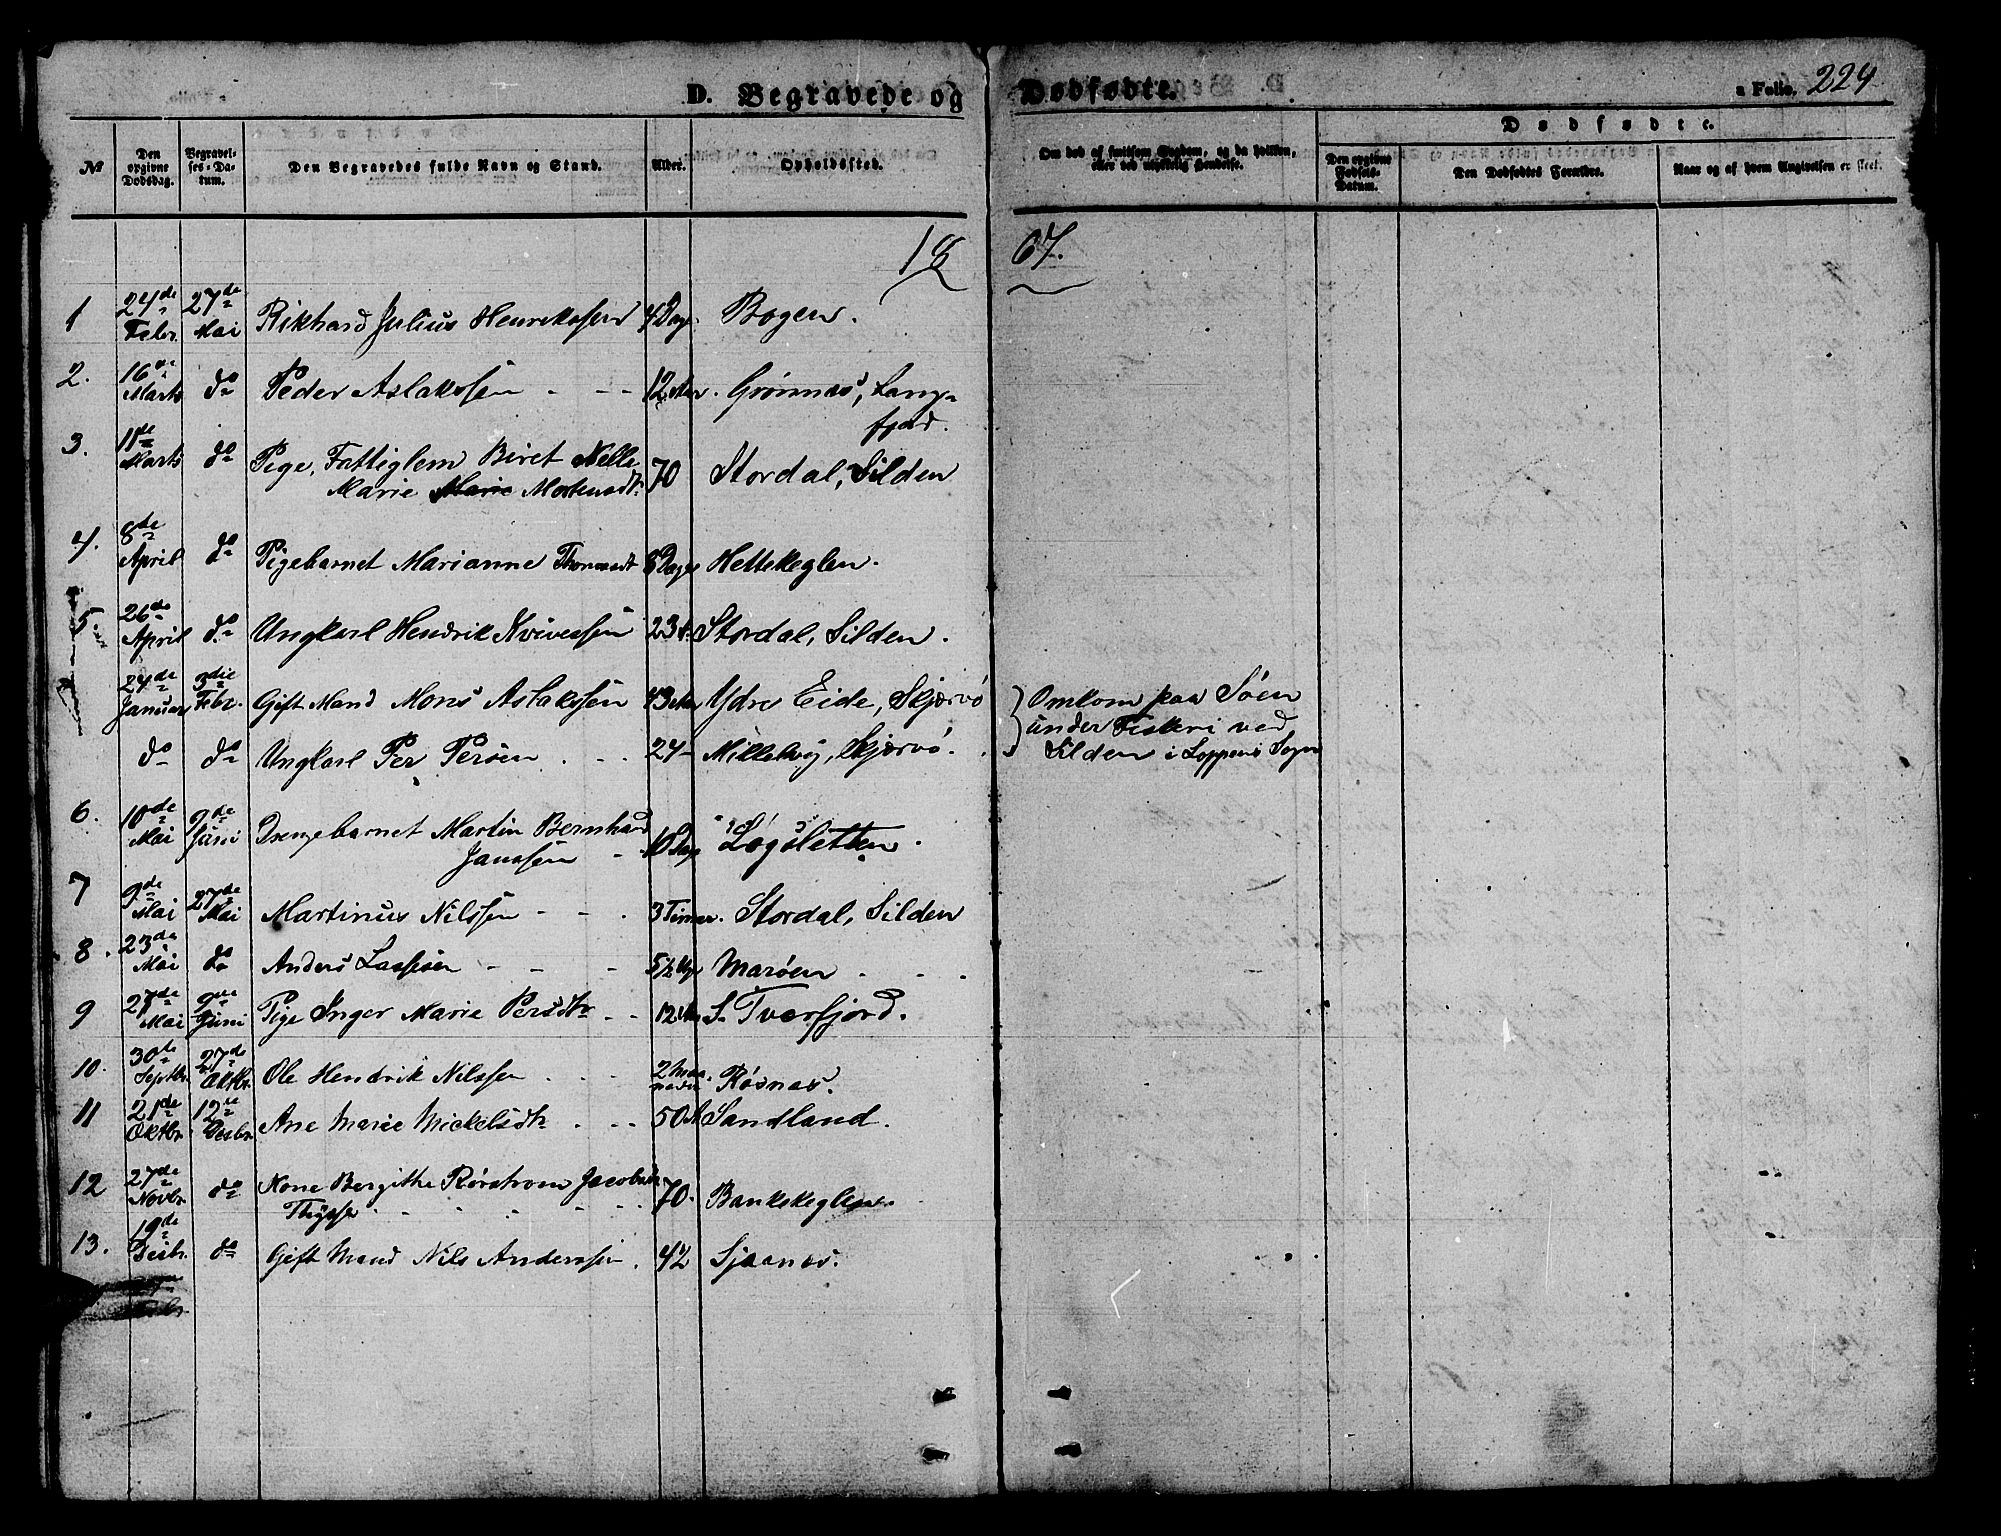 D. Begravede og Dødfødte.
a Folio. 224
Dødfødte.
№ Den opgivne Dødsdag. Begravelses-Datum. Den Begravedes fulde Navn og Stand. Alder. Opholdssted. Om død af smitsom Sygdom, og da hvilken, eller ved ulykkelig Hendelse. Den opgivne Fødsels-Datum. Den Dødfødtes Forældre. Naar og af hvem Angivelsen er skeet.
18 67.
1 24de Febr. 27de Mai Rikhard Julius Henrikssen 4 Dage. Bogen.
2. 16de Marts do Peder Aslakssen - - - 12 Aar. Grønnæs, Lang-
fjord.
3. 18de Marts do Pige, Fattiglem Biret Nelle 70 Stordal, Silden
Marie Marie Mortensdt.
4. 8de April do Pigebarnet Marianne Thomasdt 8 Dage Hettekeglen.
5. 26de April do Ungkarl Hendrik Nvivessen 23 A. Stordal, Silden.
24de Januar 3die Febr. Gift Mand Mons Aslakssen 43 Aar Ydre Eide, Skjærvø Omkom paa Søen
under Fiskeri ved
do do Ungkarl Per Persen . . . 24 - Millelvig, Skjærvø. Silden i Loppens Sogn
6. 10de Mai 9de Juni Drengebarnet Martin Bernhard
Janssen - 10 Dage Løgsletten.
7 9de Mai 27de Mai Martinus Nilssen - - . 3 Timer. Stordal, Silden
8. 23de Mai do Anders Lassesen - - - 5½ Uge Marøen . . .
9 27de Mai 9de Juni Pige Inger Marie Persdtr . . 12 Aar S. Tverfjord.
10. 30de Septbr. 27de Oktbr. Ole Hendrik Nilssen . . . 2 Maaneder Røsnæs.
11 21de Oktbr. 12te Desbr. Ane Marie Mickelsdtr . . . 50 A Sandland.
12 27de Novbr. do Kone Bergithe Rørstrom Jacobsdtr 70. Bankekeglen
13. 19de Desbr. do Gift Mand Nils Anderssen . 42 Sjaanæs.